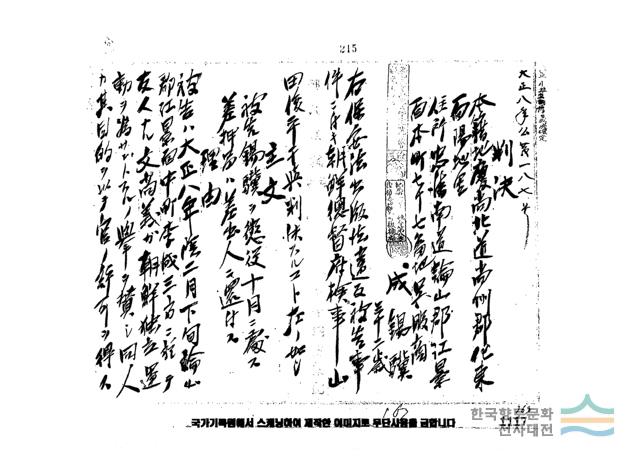 215
大正八年公第一八七号
判決
本籍地慶尚北道尚州郡化東
面陽地里
住所忠清南道論山郡江景
面本町七十七番地呉服商
成錫驥
三十二歳
右保安法出版法違反被告事
件ニ付キ朝鮮総督府検事山
田俊平干与判決スルコト左ノ如シ
主文
被告錫驥ヲ懲役十月ニ処ス
差押品ハ差出人ニ還付ス
理由
被告ハ大正八年陰二月下旬論山
郡江景面中町李成三方ニ於テ
友人ナル文高義カ朝鮮独立運
動ヲ為サントスルノ挙ヲ賛シ同人
カ其目的ヲ以テ官ノ許可ヲ得ス
국가기록원에서 스캐닝하여 제작한 이미지로 무단사용을 금합니다
1117
한국향토문화
전자대전